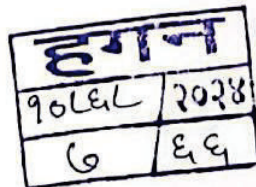 हगन
१०८६८ २०२४
७ ६६